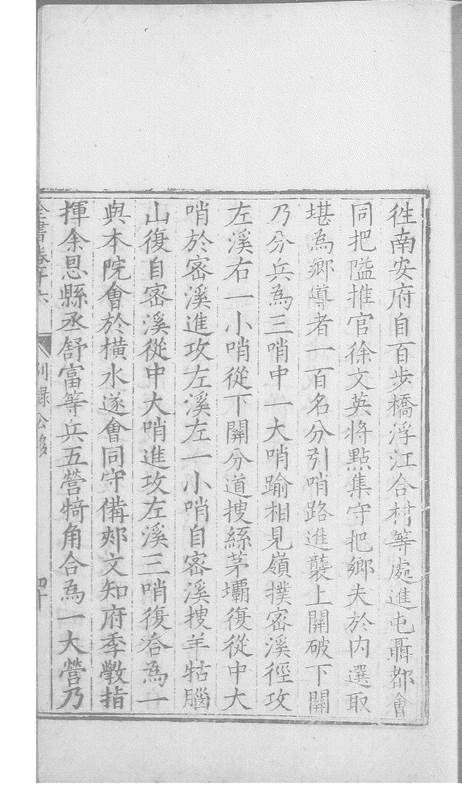 徃南安府自百步橋浮江合村等處進屯聶都會
同把隘推官徐文英將點集守把鄉夫於内選取
堪為鄉導者一百名分引哨路進襲上關破下關
乃分兵為三哨中一大哨踰相見嶺撲密溪徑攻
左溪右一小哨從下關分道搜絲茅壩復從中大
哨於密溪進攻左溪左一小哨自密溪搜羊牯腦
山復自密溪從中大哨進攻左溪三哨復合為一
與本院會於橫水遂會同守備郟文知府季斆指
揮余恩縣丞舒富等兵五營犄角合為一大營乃
全書卷十六 別録 公移 四十